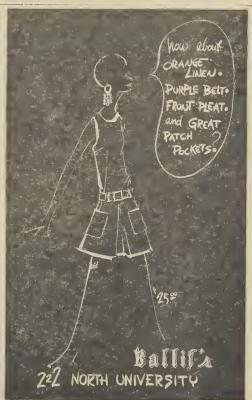 how about
ORANGE
LINEN.
PURPLE BELT.
FRONT PLEAT.
and GREAT
PATCH
POCKETS?
25⁰⁰
Ballif's
222 NORTH UNIVERSITY